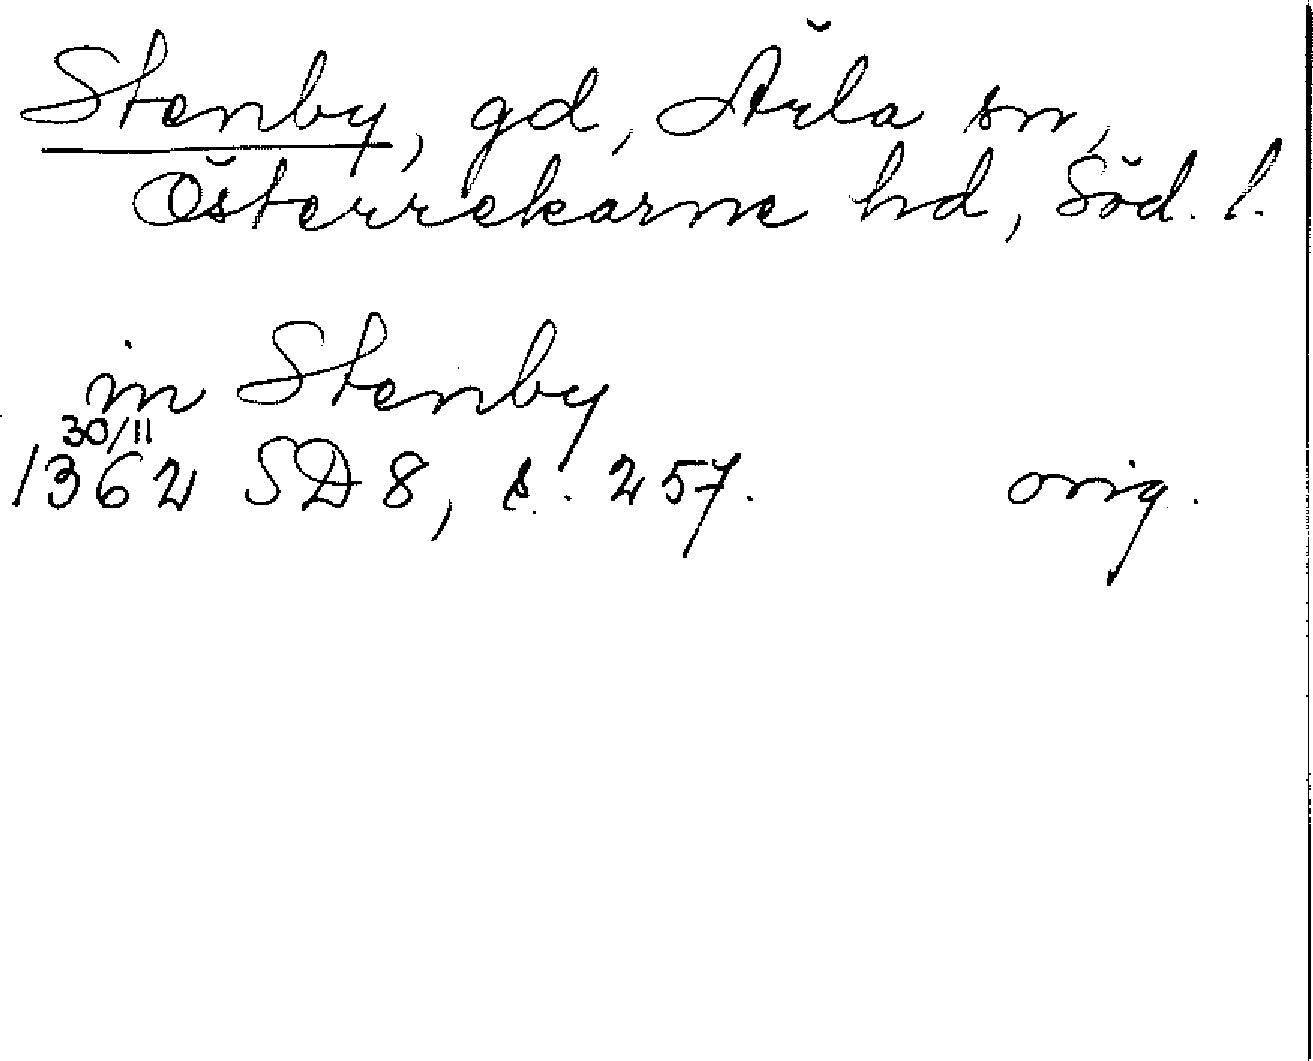 Stenby, gd, Ärla sn,
Österrekarne hd, Söd. l.
in Stenby
30/11
1362 SD 8, s. 257. orig.